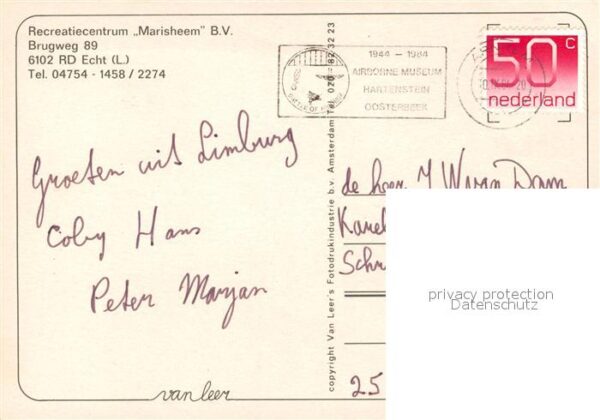 Recreatiecentrum „Marisheem" B.V.
Brugweg 89
6102 RD Echt (L.)
Tel. 04754 - 1458 / 2274
1944 - 1984
AIRBORNE MUSEUM
HARTENSTEIN
OOSTERBEEK
50 c
nederland
Groeten uit Limburg
Coby Hans
Peter Marjan
copyright Van Leer's Fotodrukindustrie b.v. Amsterdam Tel. 020 - 82 32 23
de heer J W van Dam
Karel
Schr
25
privacy protection
Datenschutz
van leer